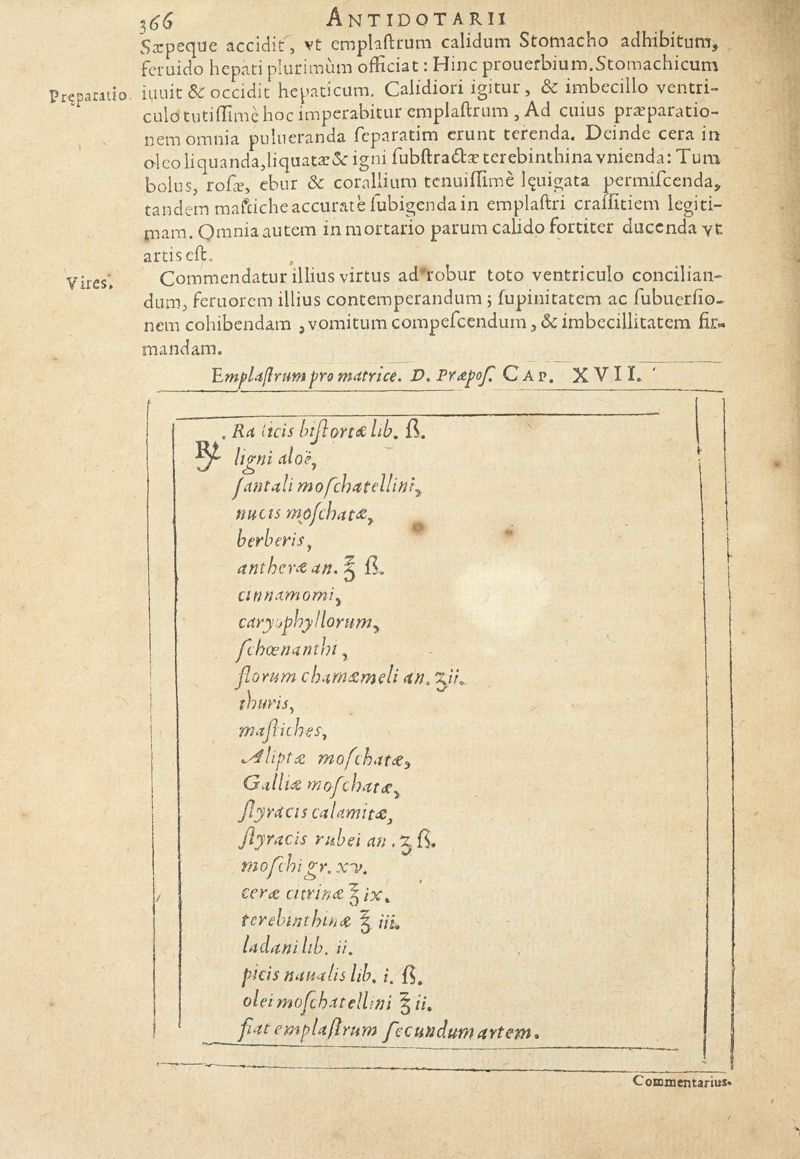 366 ANTIDOTARII
Sæpeque accidit, vt emplaſtrum calidum Stomacho adhibitum,
feruido hepati plurimùm officiat : Hinc prouerbium. Stomachicum
Pręparatio. iuuit & occidit hepaticum. Calidiori igitur, & imbecillo ventri-
culo tutiſſimè hoc imperabitur emplaſtrum, Ad cuius præparatio-
nem omnia pulueranda ſeparatim erunt terenda. Deinde cera in
oleo liquanda, liquatæ & igni ſubſtractæ terebinthina vnienda: Tum
bolus, roſæ, ebur & corallium tenuiſſimè lęuigata permiſcenda,
tandem maſtiche accuratè ſubigenda in emplaſtri craſſitiem legiti-
mam. Omnia autem in mortario parum calido fortiter ducenda vt
artis eſt.
Vires. Commendatur illius virtus ad robur toto ventriculo concilian-
dum, feruorem illius contemperandum ; ſupinitatem ac ſubuerſio-
nem cohibendam, vomitum compeſcendum, & imbecillitatem fir-
mandam.
Emplaſtrum pro matrice. D. Præpoſ. CAP. XVII.
℞. Radicis biſtortæ lib. ß.
ligni aloë,
ſantali moſchatellini,
nucis moſchatæ,
berberis,
antheræ an. ℥ ß.
cinnamomi,
caryophyllorum,
ſchœnanthi,
florum chamæmeli an. ʒii.
thuris,
maſtiches,
Aliptæ moſchatæ,
Galliæ moſchatæ,
ſtyracis calamitæ,
ſtyracis rubei an. ʒ ß.
moſchi gr. xv.
ceræ citrinæ ℥ ix.
terebinthinæ ℥ iii.
ladani lib. ii.
picis naualis lib. i. ß.
olei moſchatellini ℥ ii.
fiat emplaſtrum ſecundum artem.
Commentarius.